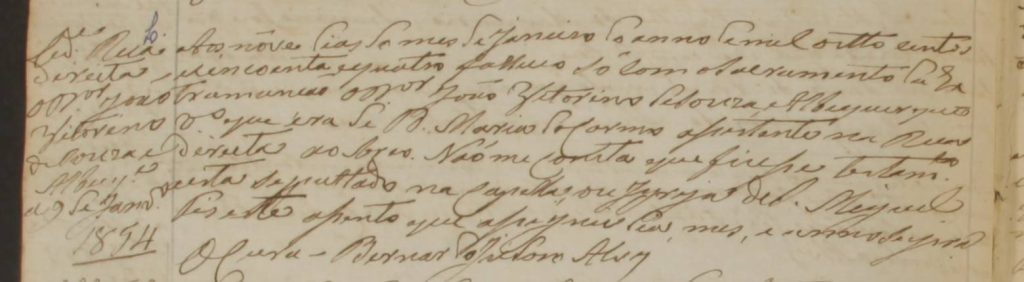 Rua
direita
João
Vitorino
de Souza e
Albuq.e
a 9 de Janr.o
1854
Aos nove dias do mes de Janeiro do anno de mil oitto centos
e sincoenta e quatro faleceo só com o Sacramento da Ex
trema unção João Vitorino de Souza e Albuquerque
que era de D. Maria do Carmo asistente na Rua
direita. Não me consta que fizesse testam.to
está sepultado na Capella, ou Igreja de S. Miguel
fis este asento que asigney dia, mes, e anno
O Cura - Bernardo